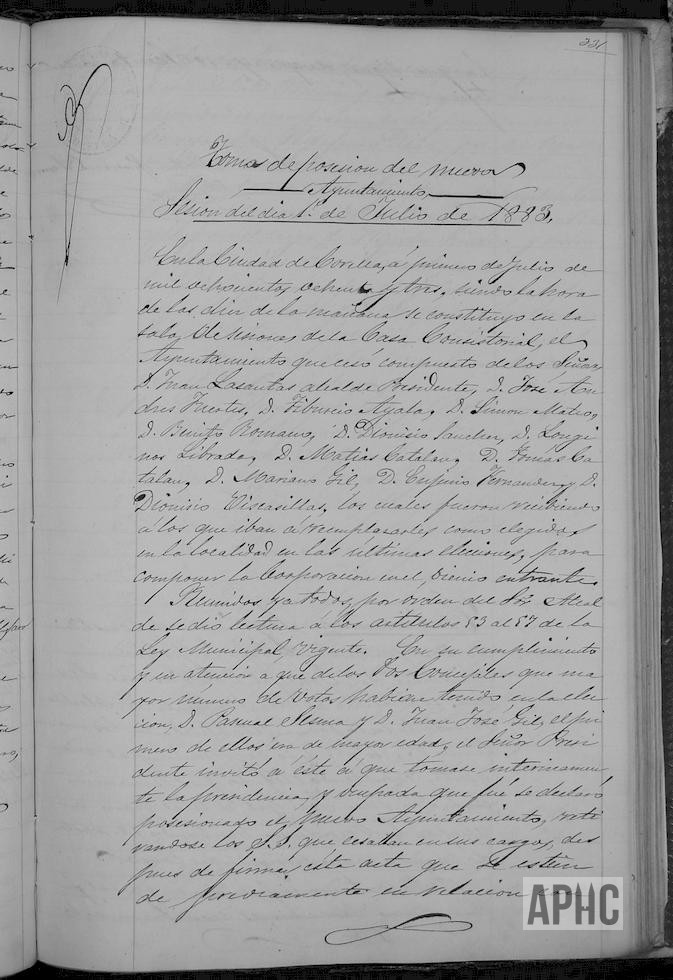 221
Toma de posesion del nuevo
Ayuntamiento
Sesion del dia 1.º de Julio de 1883.
En la Ciudad de Corella, a primero de Julio de
mil ochocientos ochenta y tres, siendo la hora
de las diez de la mañana se constituyó en la
sala de sesiones de la Casa Consistorial, el
Ayuntamiento que cesó compuesto de los Señores
D. Juan Lasantas alcalde Presidente, D. José An
dres Fuertes, D. Tiburcio Ayala, D. Simon Mateo,
D. Benito Romano, D. Dionisio Sanchez, D. Longi
nos Librada, D. Matias Catalan, D. Tomás Ca
talan, D. Mariano Gil, D. Eugenio Fernandez y D.
Dionisio Viscasillas, los cuales fueron recibiendo
á los que iban á reemplazarles como elegidos
en la localidad en las últimas elecciones, para
componer la Corporacion en el bienio entrante.
Reunidos ya todos, por orden del Sór Alcal
de se dió lectura a los artículos 53 al 57 de la
Ley Municipal vigente. En su cumplimiento
y en atencion a que de los dos Concejales que ma
yor número de votos habian tenido en la elec
cion, D. Pascual Sesma y D. Juan José Gil, el pri
mero de ellos era de mayor edad, el Señor Presi
dente invitó á éste á que tomase interinamen
te la presidencia, y ocupada que fue se declaró
posesionado el nuevo Ayuntamiento, reti
randose los S.S. que cesaban en sus cargos, des
pues de firmar esta acta que se estien
de previamente en relacion con
APHC